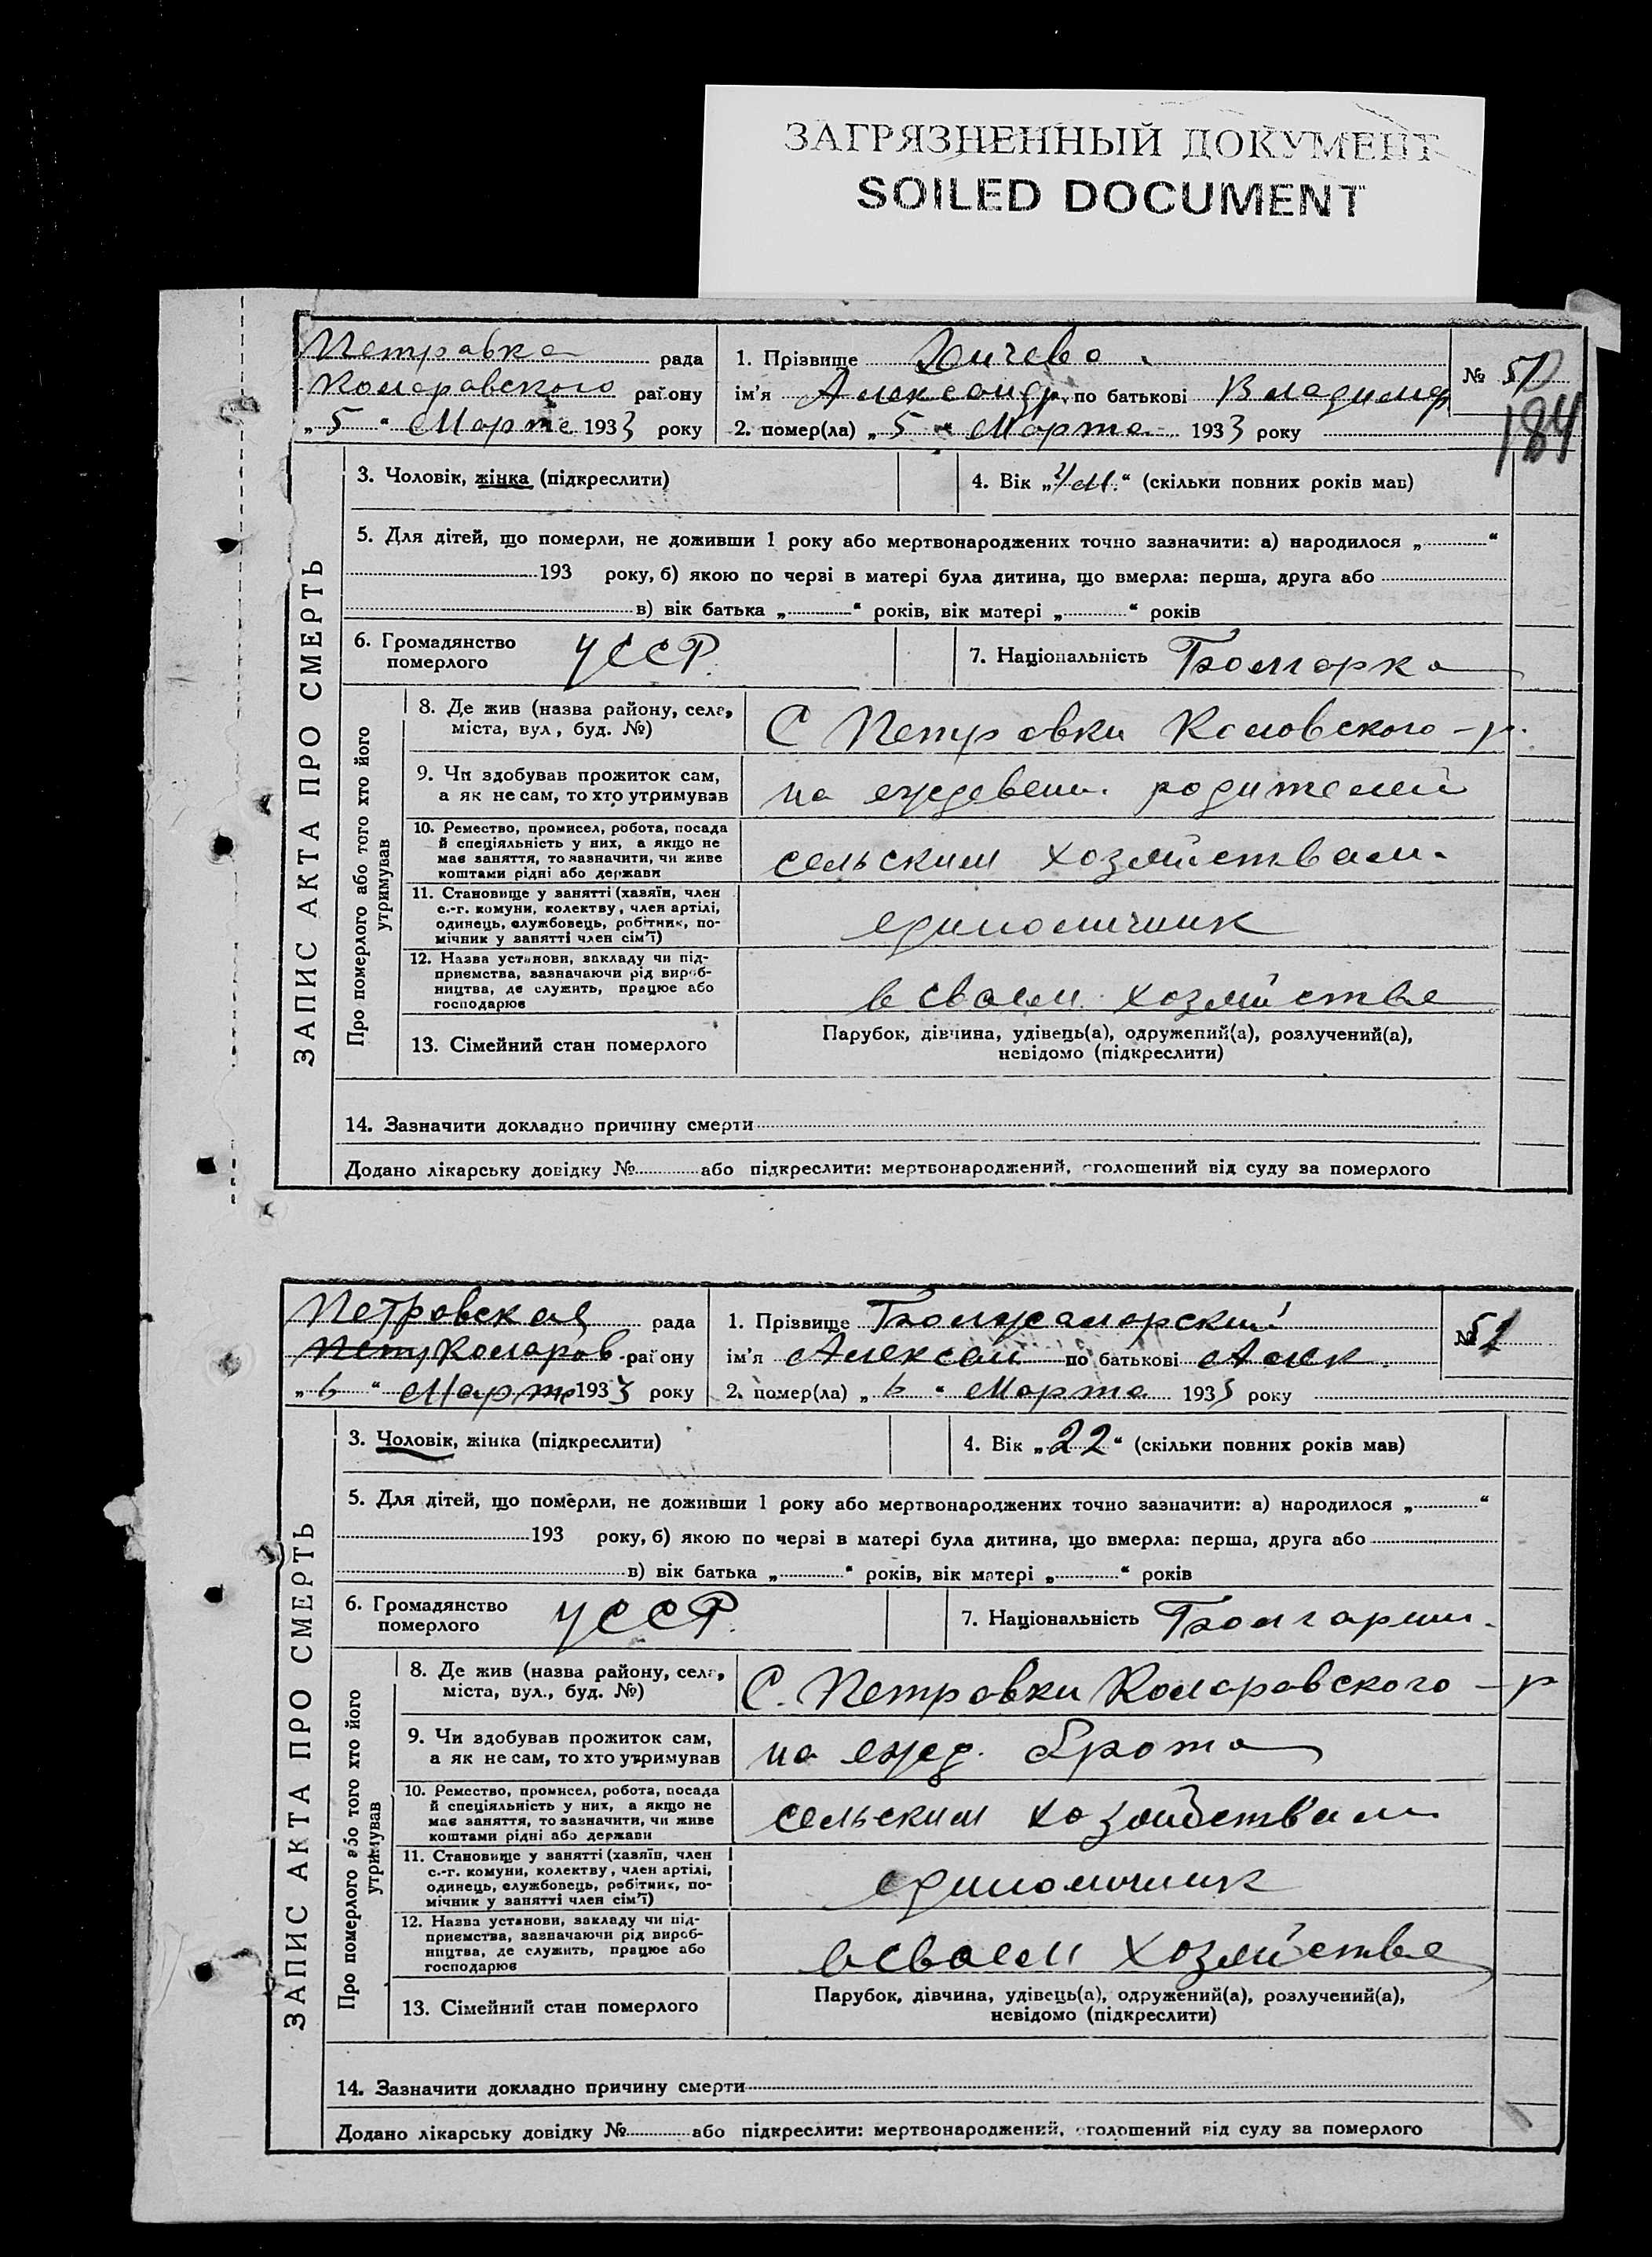 ЗАГРЯЗНЕННЫЙ ДОКУМЕНТ
SOILED DOCUMENT
ЗАПИС АКТА ПРО СМЕРТЬ
Петравка рада
Комаравского району
„5“ Марта 1933 року
1. Прізвище
ім'я Александр. по батькові Владимир
2. помер(ла) „5“ Марта 1933 року
№ 50
184
3. Чоловік, жінка (підкреслити)
4. Вік „ м.“ (скільки повних років мав)
5. Для дітей, що померли, не доживши 1 року або мертвонароджених точно зазначити: а) народилося „ “
193 року, б) якою по черзі в матері була дитина, що вмерла: перша, друга або
в) вік батька „ “ років, вік матері „ “ років
6. Громадянство
померлого
УССР.
7. Національність Болгарка
Про померлого або того хто його
утримував
8. Де жив (назва району, села,
міста, вул, буд. №)
С Петровки Комовского-р.
9. Чи здобував прожиток сам,
а як не сам, то хто утримував
на еждевени. родителей
10. Ремество, промисел, робота, посада
й спеціяльність у них, а якщо не
має заняття, то зазначити, чи живе
коштами рідні або держави
сельским хозяйствам.
11. Становище у занятті (хазяїн, член
с.-г. комуни, колектву, член артілі,
одинець, службовець, робітник, по-
мічник у занятті член сім'ї)
единоличник
12. Назва установи, закладу чи під-
приємства, зазначаючи рід вироб-
ництва, де служить, працює або
господарює
в сваем хозяйстве
13. Сімейний стан померлого
Парубок, дівчина, удівець(а), одружений(а), розлучений(а),
невідомо (підкреслити)
14. Зазначити докладно причину смерти
Додано лікарську довідку № або підкреслити: мертвонароджений, оголошений від суду за померлого
ЗАПИС АКТА ПРО СМЕРТЬ
Петровская рада
Комаров району
„6“ Марта 1933 року
1. Прізвище
ім'я Алексей по батькові Алек.
2. помер(ла) „6“ Марта 1933 року
№ 51
3. Чоловік, жінка (підкреслити)
4. Вік „22“ (скільки повних років мав)
5. Для дітей, що померли, не доживши 1 року або мертвонароджених точно зазначити: а) народилося „ “
193 року, б) якою по черзі в матері була дитина, що вмерла: перша, друга або
в) вік батька „ “ років, вік матері „ “ років
6. Громадянство
померлого
УССР.
7. Національність Болгарин.
Про померлого або того хто його
утримував
8. Де жив (назва району, села,
міста, вул., буд. №)
С. Петравки Комаравского - р
9. Чи здобував прожиток сам,
а як не сам, то хто утримував
на ежд. брата
10. Ремество, промисел, робота, посада
й спеціяльність у них, а якщо не
має заняття, то зазначити, чи живе
коштами рідні або держави
сельским хозяйствам
11. Становище у занятті (хазяїн, член
с.-г. комуни, колектву, член артілі,
одинець, службовець, робітник, по-
мічник у занятті член сім'ї)
единоличник
12. Назва установи, закладу чи під-
приємства, зазначаючи рід вироб-
ництва, де служить, працює або
господарює
в сваем хозяйстве
13. Сімейний стан померлого
Парубок, дівчина, удівець(а), одружений(а), розлучений(а),
невідомо (підкреслити)
14. Зазначити докладно причину смерти
Додано лікарську довідку № або підкреслити: мертвонароджений, оголошений від суду за померлого